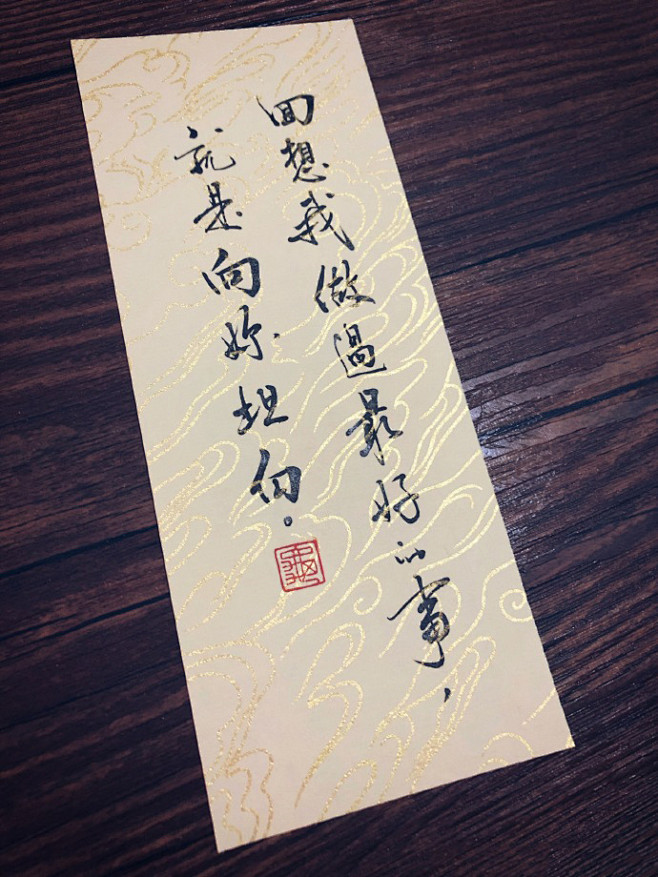 回想我做過最好的事、
就是向妳坦白。